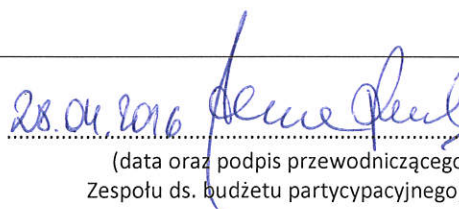 28.04.2016
(data oraz podpis przewodniczącego
Zespołu ds. budżetu partycypacyjnego